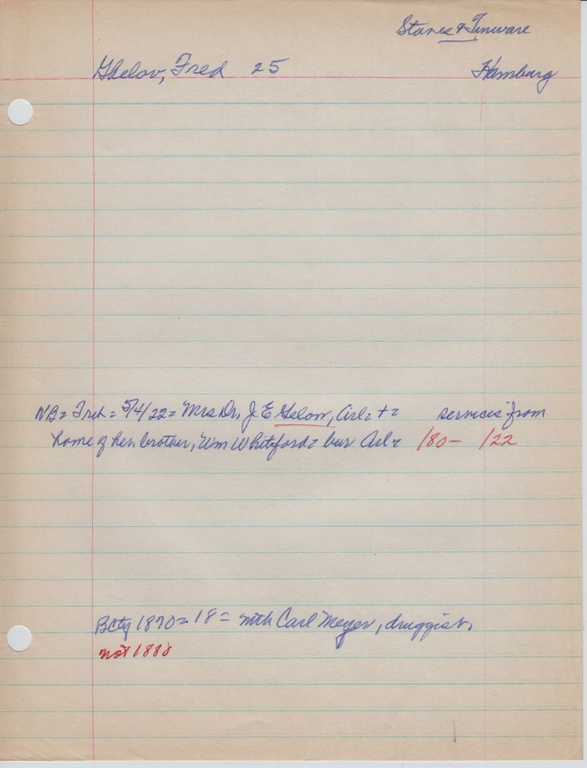 Stoves & Tinware
Ghelov, Fred 25 Hamburg
NB = Trib = 5/4/22 = Mrs Dr. J E Gelow, Arl = + = services from
home of her brother, Wm Whitford = bur Arl = /80 - /22
BCty 1870 = 18 = with Carl Meyer, druggist.
not 1880